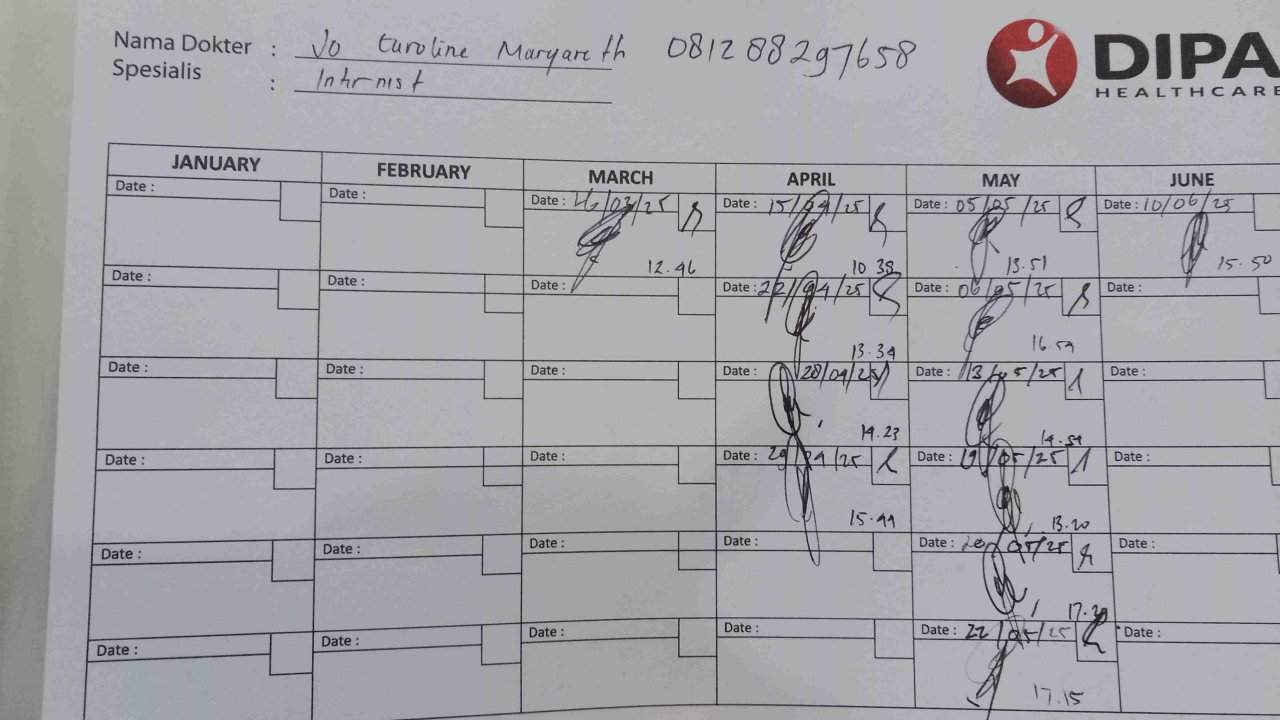 Nama Dokter : Jo Caroline Margareth 081288297658
Spesialis : Internist
DIPA
HEALTHCARE
JANUARY FEBRUARY MARCH APRIL MAY JUNE
Date : Date : Date : 26/03/25 Date : 15/04/25 Date : 05/05/25 Date : 10/06/25
12.46 10 38 13.51 15.50
Date : Date : Date : Date : 22/04/25 Date : 06/05/25 Date :
13.34 16 59
Date : Date : Date : Date : 28/04/25 Date : 13/05/25 Date :
14.23 14.59
Date : Date : Date : Date : 29/04/25 Date : 19/05/25 Date :
15.44 13.20
Date : Date : Date : Date : Date : 20/05/25 Date :
Date : Date : Date : Date : Date : 22/05/25 Date :
17.15